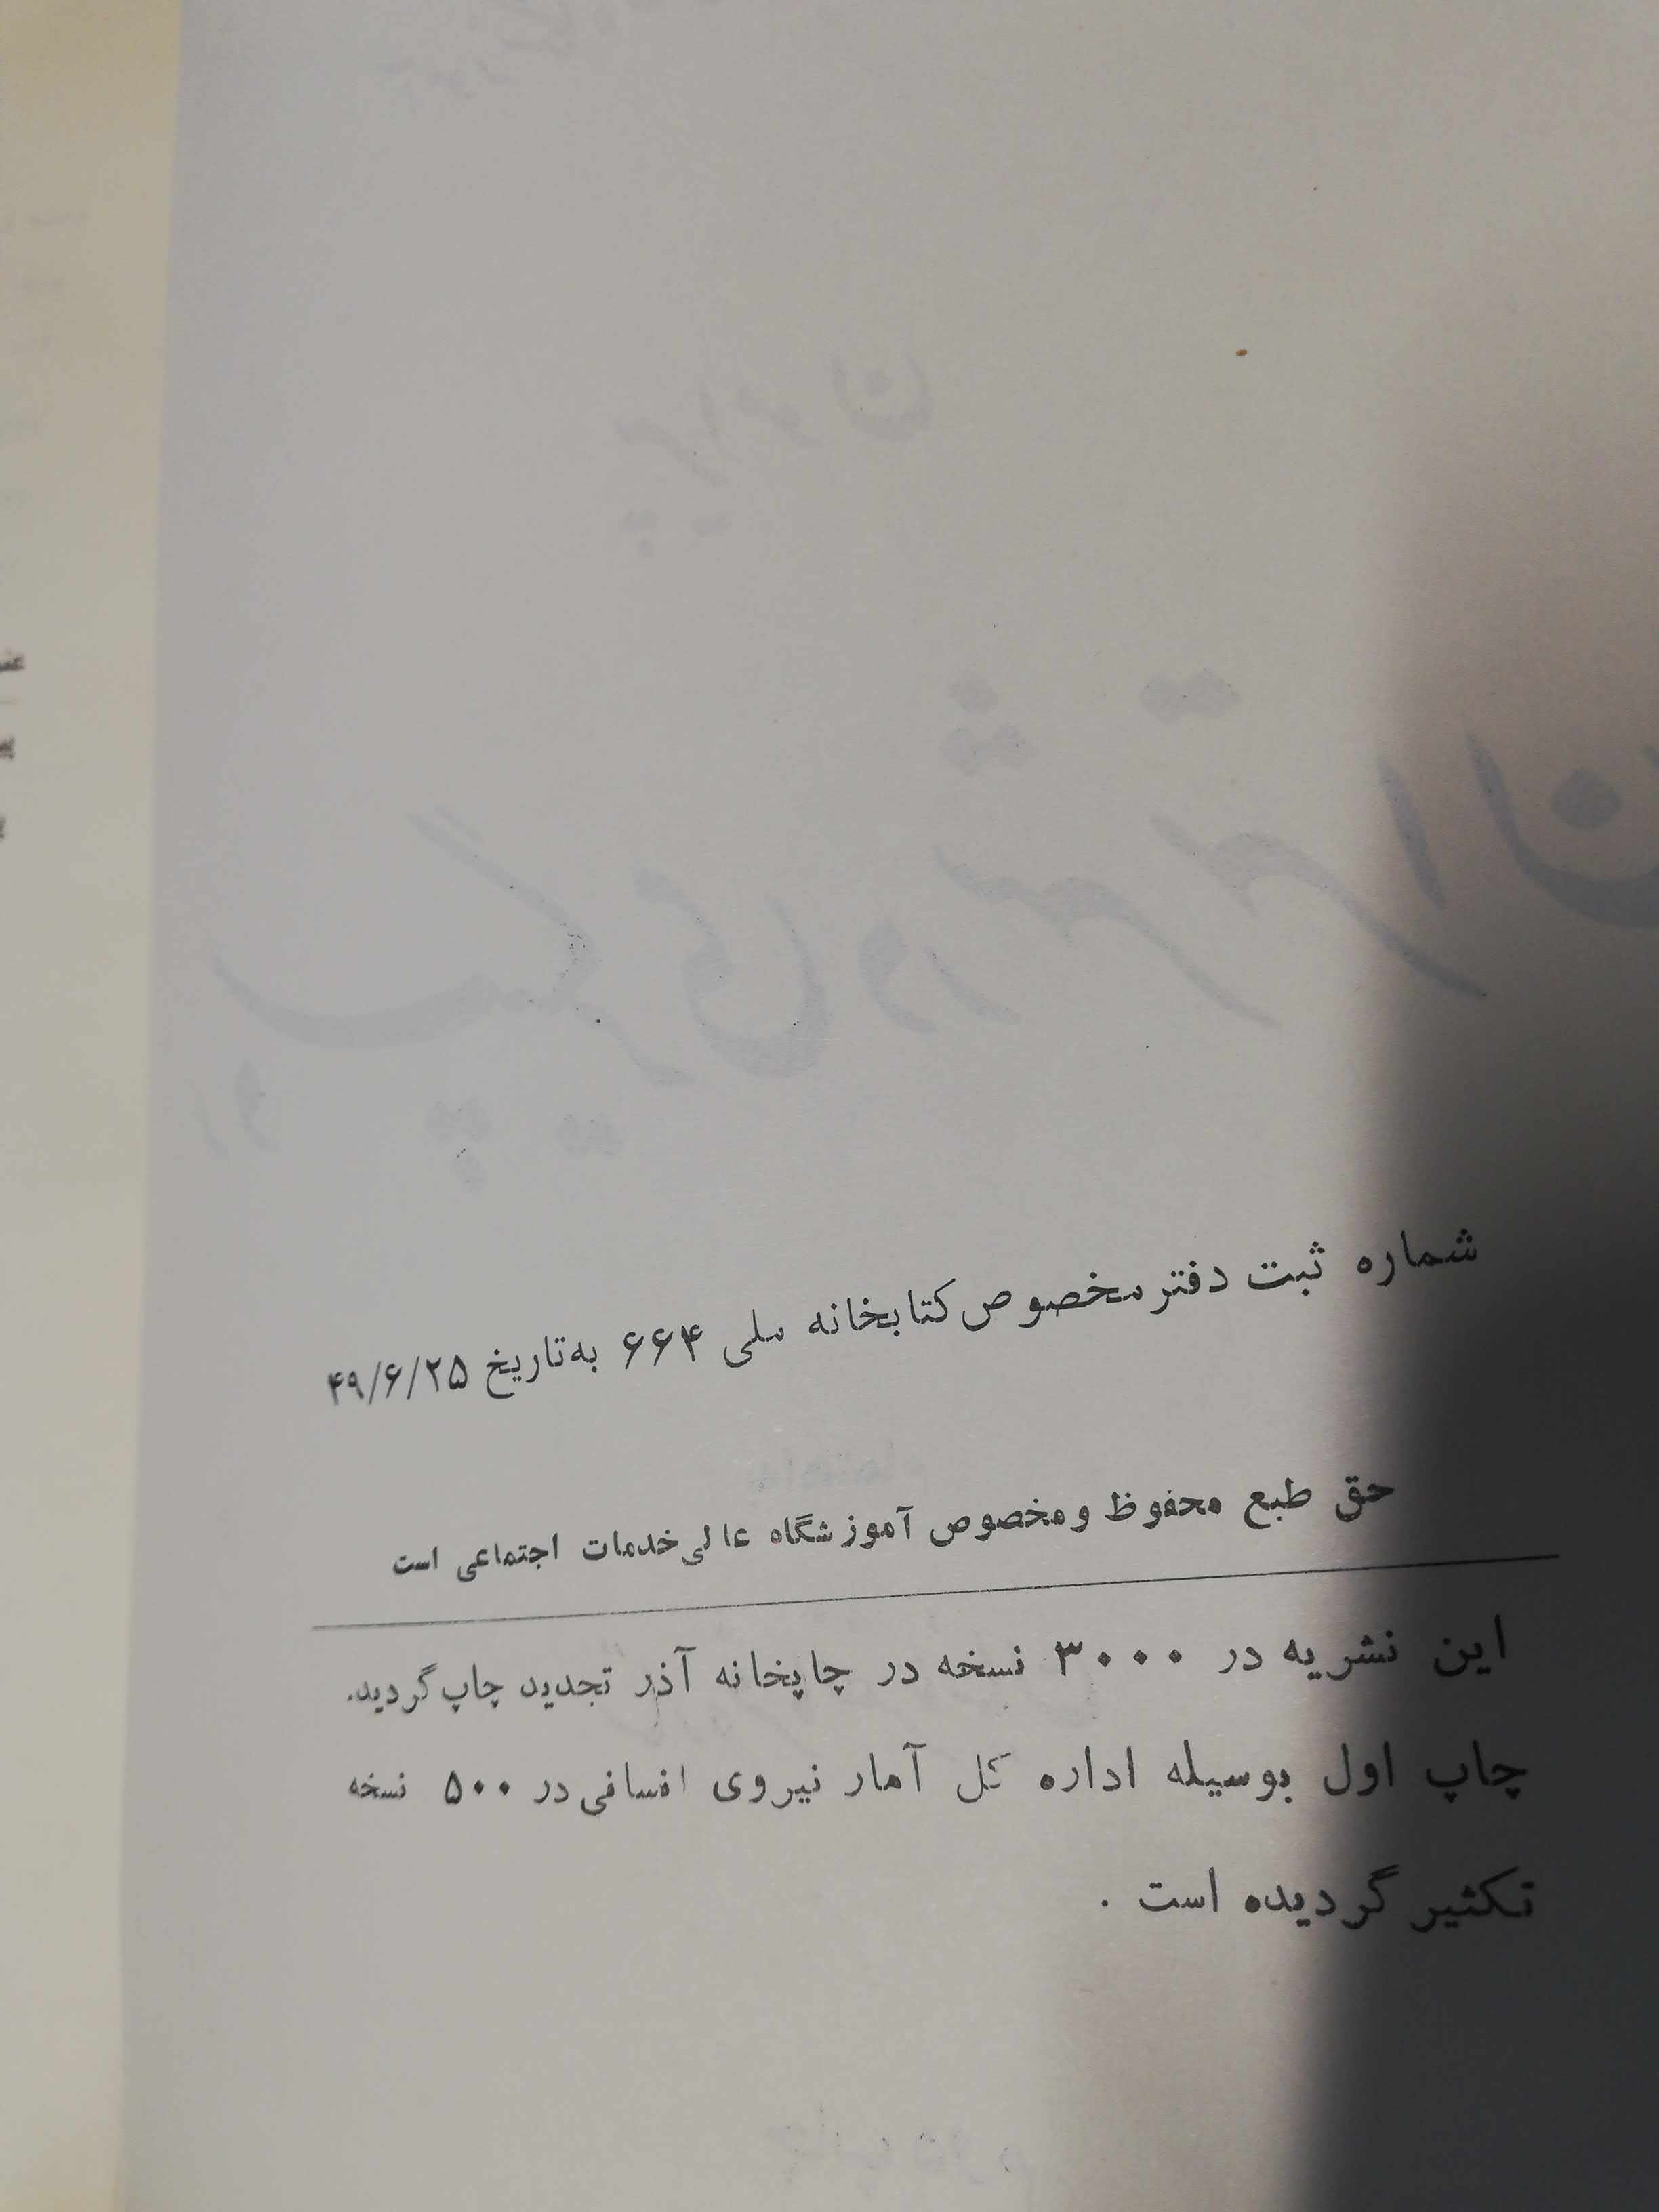 شماره ثبت دفتر مخصوص کتابخانه ملی ۶۶۴ به تاریخ ۴۹/۶/۲۵
حق طبع محفوظ و مخصوص آموزشگاه عالی خدمات اجتماعی است
این نشریه در ۳۰۰۰ نسخه در چاپخانه آذر تجدید چاپ گردید.
چاپ اول بوسیله اداره کل آمار نیروی انسانی در ۵۰۰ نسخه
تکثیر گردیده است .